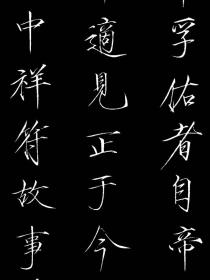 孚佑者自帝
適見正于今
中祥符故事